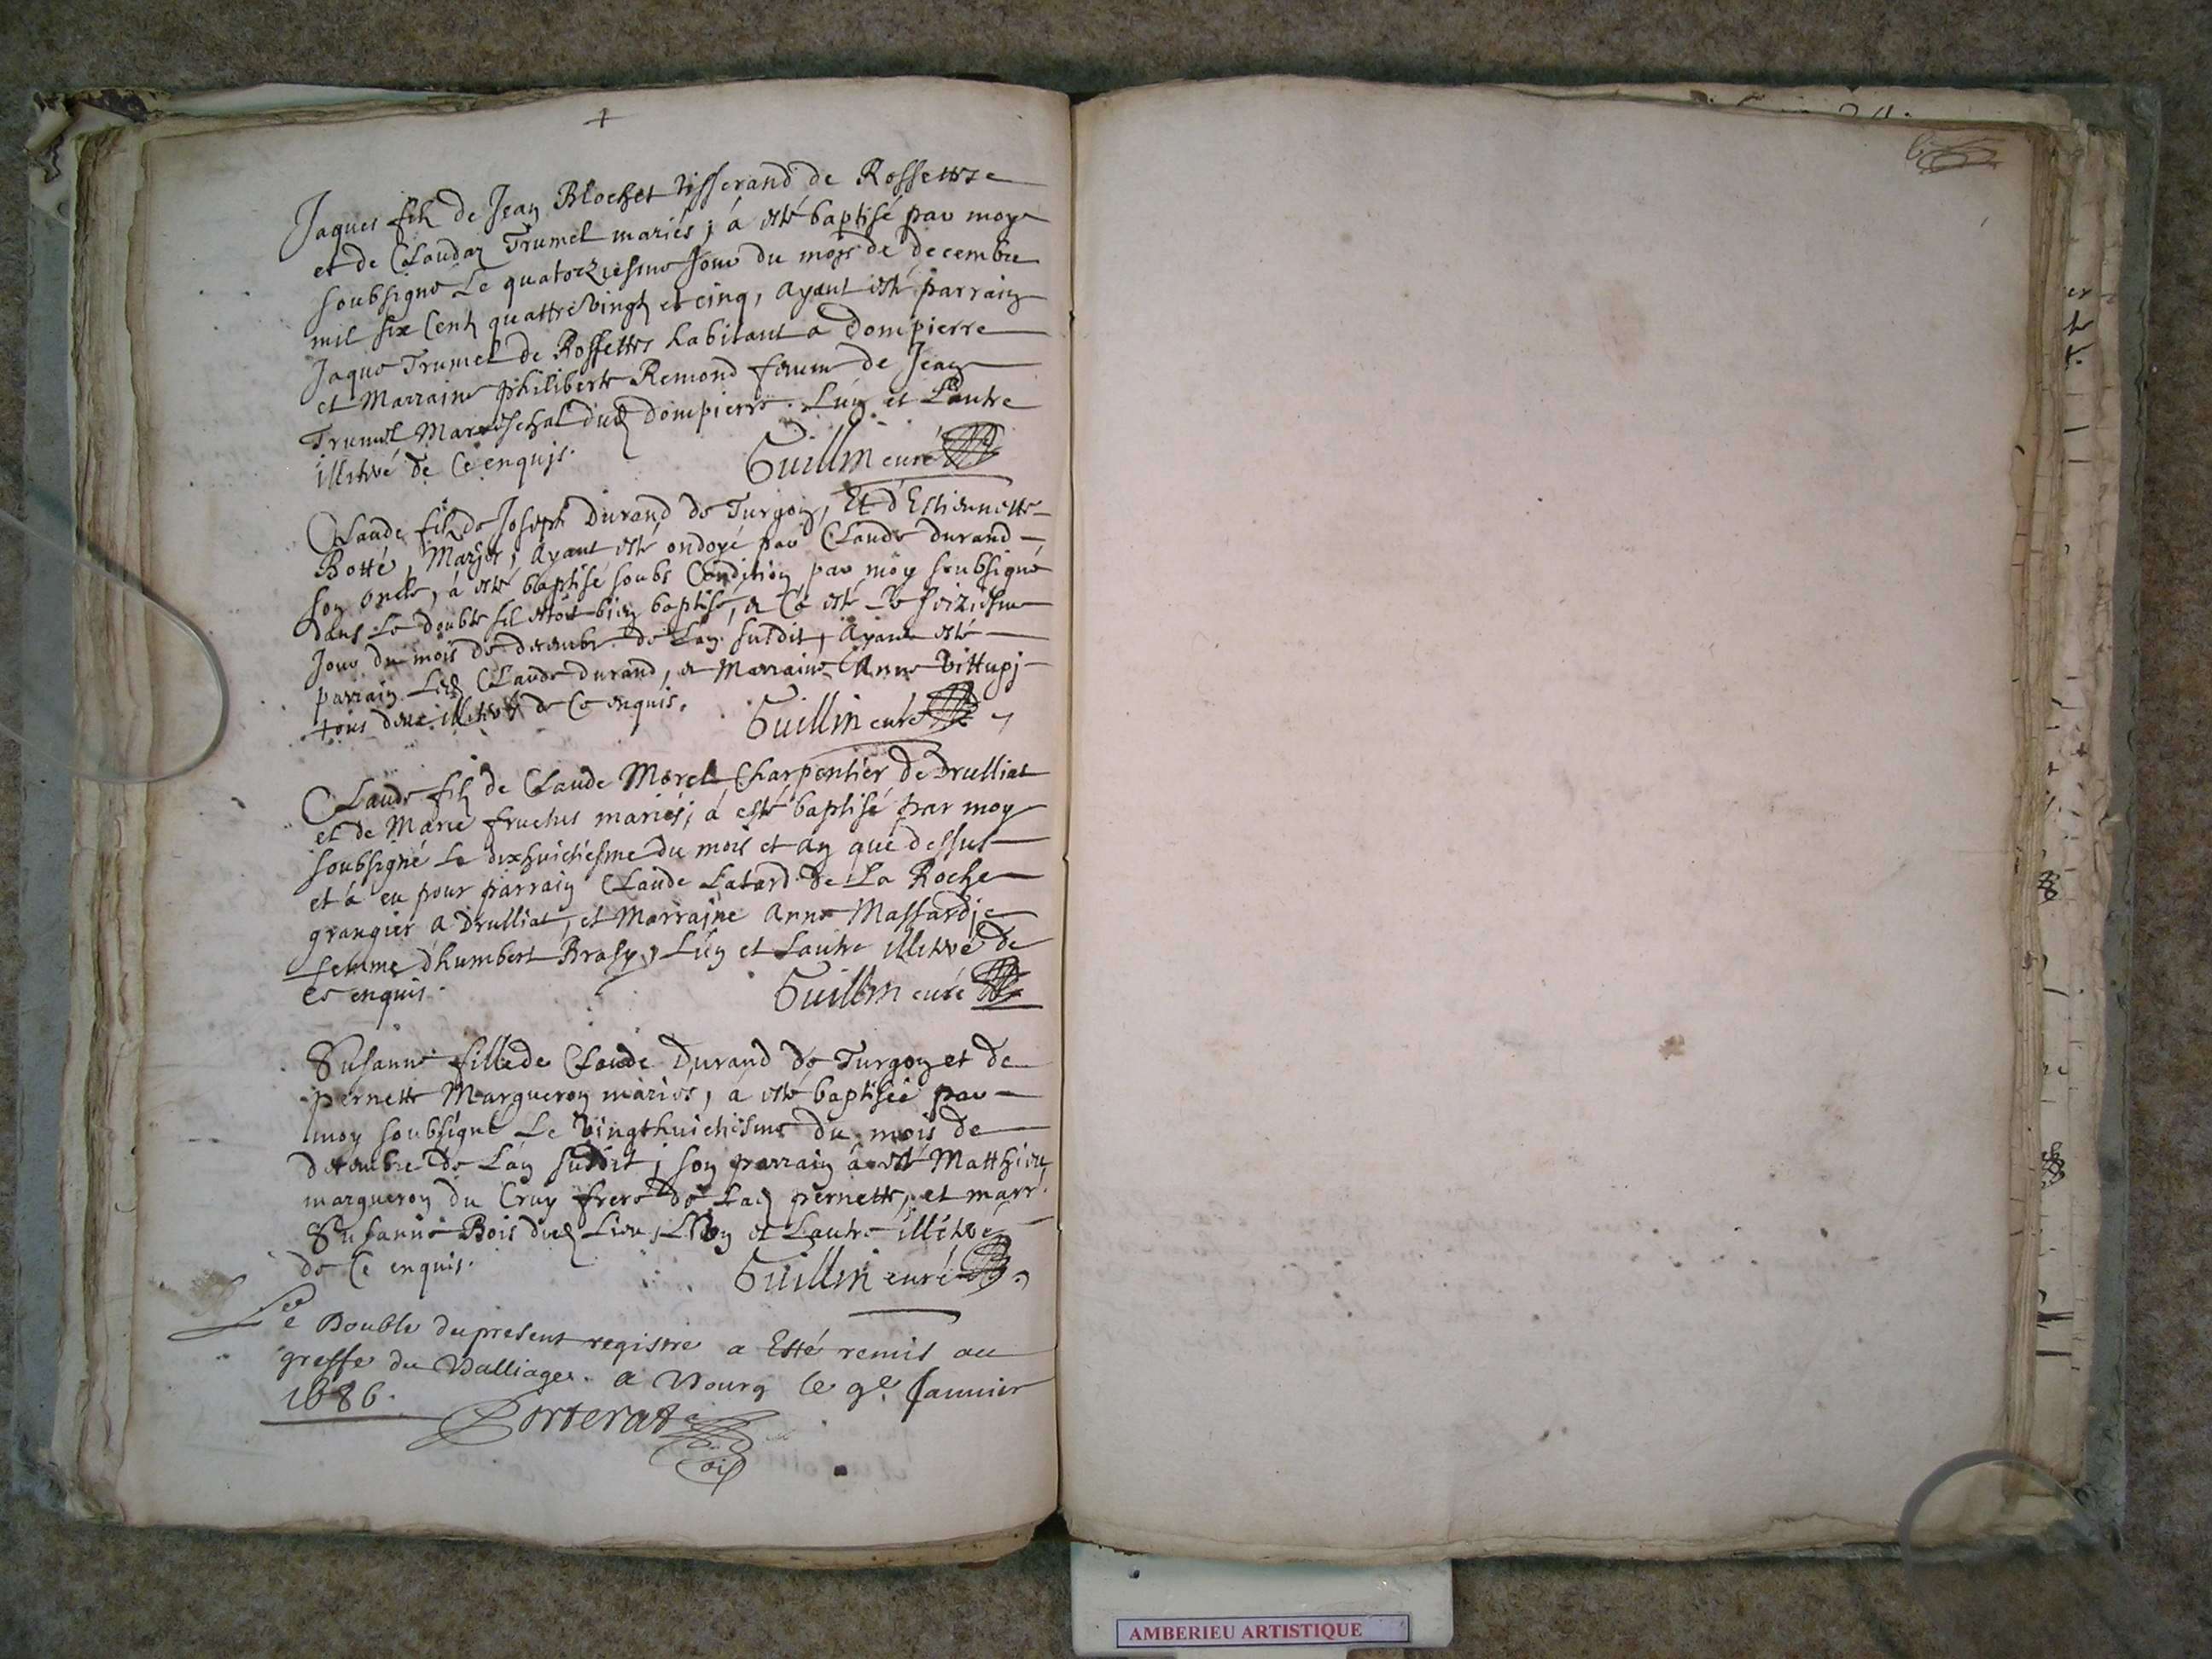 Jaques filz de Jean Blochet tisserand de Rossettes
et de Claudaz Trumel mariés, à esté baptisé par moy
soubsigné Le quatorziesme Jour du mois de decembre
mil six Centz quattre vingtz et cinq, ayant esté parrain
Jaque Trumel de Rossettes habitant a Dompierre
et Marraine philiberte Remond femme de Jean
Trumel Mareschal dud Dompierre. Lún et Láutre
illitéré de Ce enquis.
Guillin curé
Claude filz de Joseph Durand de Turgon, Et d'Estiennette
Botté, Mariés, ayant esté ondoyé par Claude durand
son oncle, à esté baptisé soubs Condition par moy soubsigné
dans le doubte sil estoit bien baptisé, & Cà esté le seiziesme
Jour du mois de decembre de Lán susdit, ayant esté
parrain Led Claude durand, & Marraine Anne
tous deux illiteré de Ce enquis.
Guillin curé
Claude filz de Claude Morel Charpentier de Drulliat
et de Marie fructus mariés, à esté baptisé par moy
soubsigné Le dixhuictiesme du mois et an que dessus
et à eu pour parrain Claude Latard de La Roche
grangier à Drulliat, et Marraine Anne Massardie
femme d'humbert Brasy, Lún et Lautre illiteré de
ce enquis.
Guillin curé
Susanne fille de Claude Durand de Turgon et de
pernette Margueron mariés, à esté baptisée par
moy soubsigné Le vingthuictiesme du mois de
decembre de Lán susdit, son parrain à esté Matthieu
margueron du Cruy frere de Lad pernette, et marr.
Susanne Bois dud Lieu, L'un et Lautre illiteré
de Ce enquis.
Guillin curé
Le Double du present registre a Esté remis au
greffe du Balliage. a Bourg le 9e Jannier
1686.
Porterat
AMBERIEU ARTISTIQUE